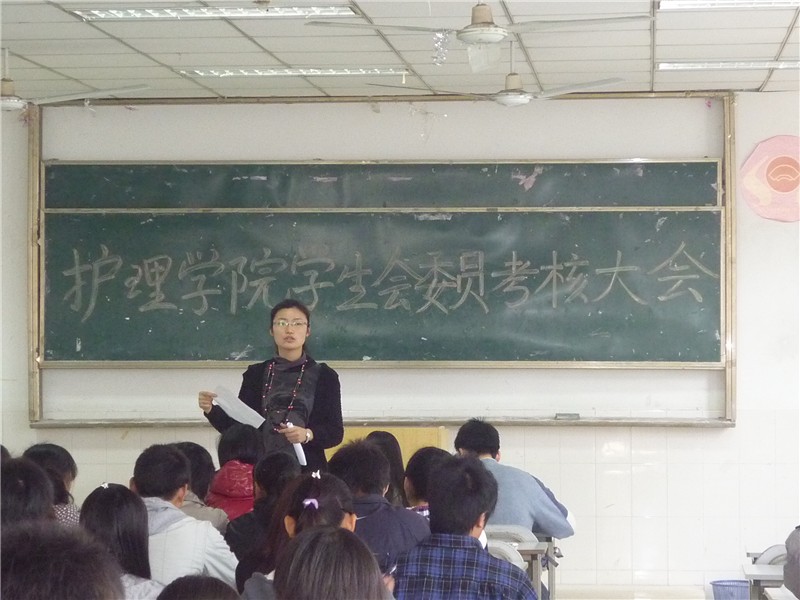 护理学院学生会委员考核大会